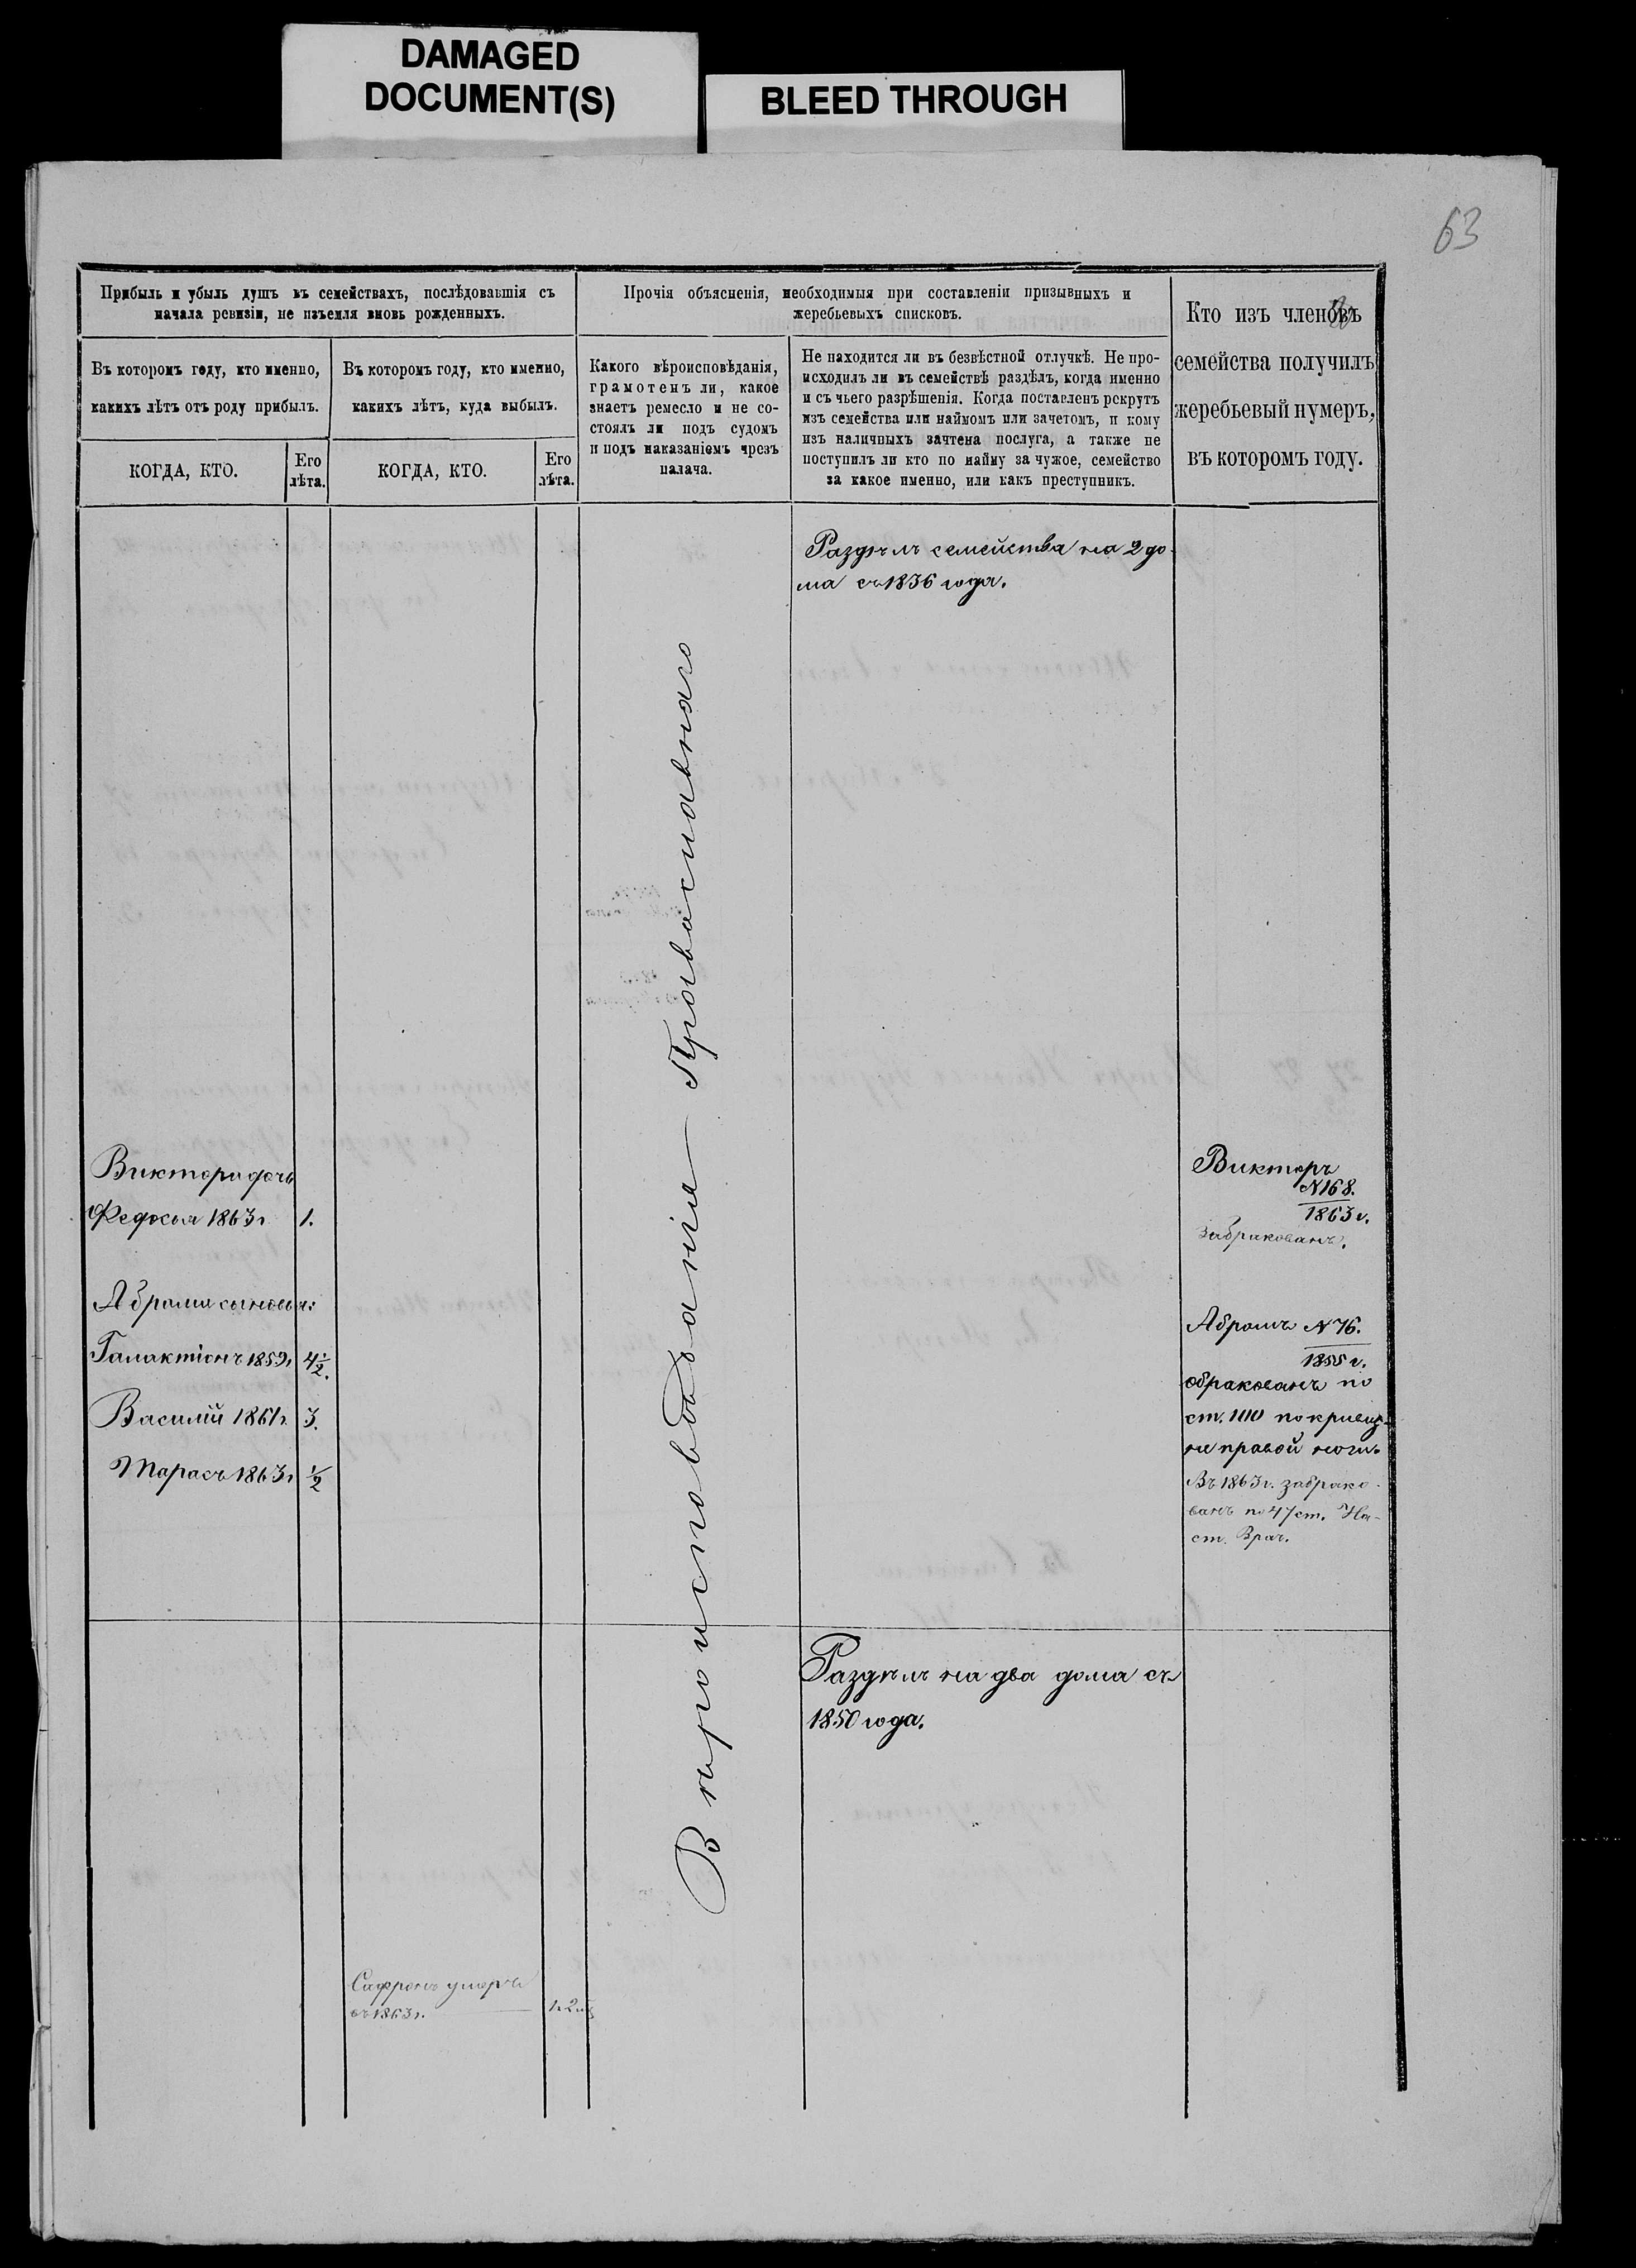 DAMAGED
DOCUMENT(S)
BLEED THROUGH
63
Прибыль и убыль душъ въ семействахъ, послѣдовавшія съ
начала ревизіи, не изъемля вновь рожденныхъ.
Въ которомъ году, кто именно,
какихъ лѣтъ отъ роду прибылъ.
КОГДА, КТО.
Его
лѣта.
Въ которомъ году, кто именно,
какихъ лѣтъ, куда выбылъ.
КОГДА, КТО.
Его
лѣта.
Прочія объясненія, необходимыя при составленіи призывныхъ и
жеребьевыхъ списковъ.
Какого вѣроисповѣданія,
грамотенъ ли, какое
знаетъ ремесло и не со-
стоялъ ли подъ судомъ
и подъ наказаніемъ чрезъ
палача.
Не находится ли въ безвѣстной отлучкѣ. Не про-
исходилъ ли въ семействѣ раздѣлъ, когда именно
и съ чьего разрѣшенія. Когда поставленъ рекрутъ
изъ семейства или наймомъ или зачетомъ, и кому
изъ наличныхъ зачтена послуга, а также не
поступилъ ли кто по найму за чужое, семейство
за какое именно, или какъ преступникъ.
Кто изъ членовъ
семейства получилъ
жеребьевый нумеръ,
въ которомъ году.
Раздѣлъ семейства на 2 до-
ма съ 1836 года.
Вѣроисповѣданія Православнаго
Виктора дочь
Федосья 1863г. 1.
Абрама сыновья:
Галактіонъ 1859г. 4½.
Василій 1861г. 3.
Тарасъ 1863г. ½
Викторъ
N168.
1863г.
забракованъ.
Абрамъ N76.
1855г.
обракованъ по
ст. 100 по кривиз-
не правой ноги.
Въ 1863г. забрако-
ванъ по 47 ст. На-
ст. Врач.
Раздѣлъ на два дома съ
1850 года.
Сафронъ умеръ
въ 1863г.